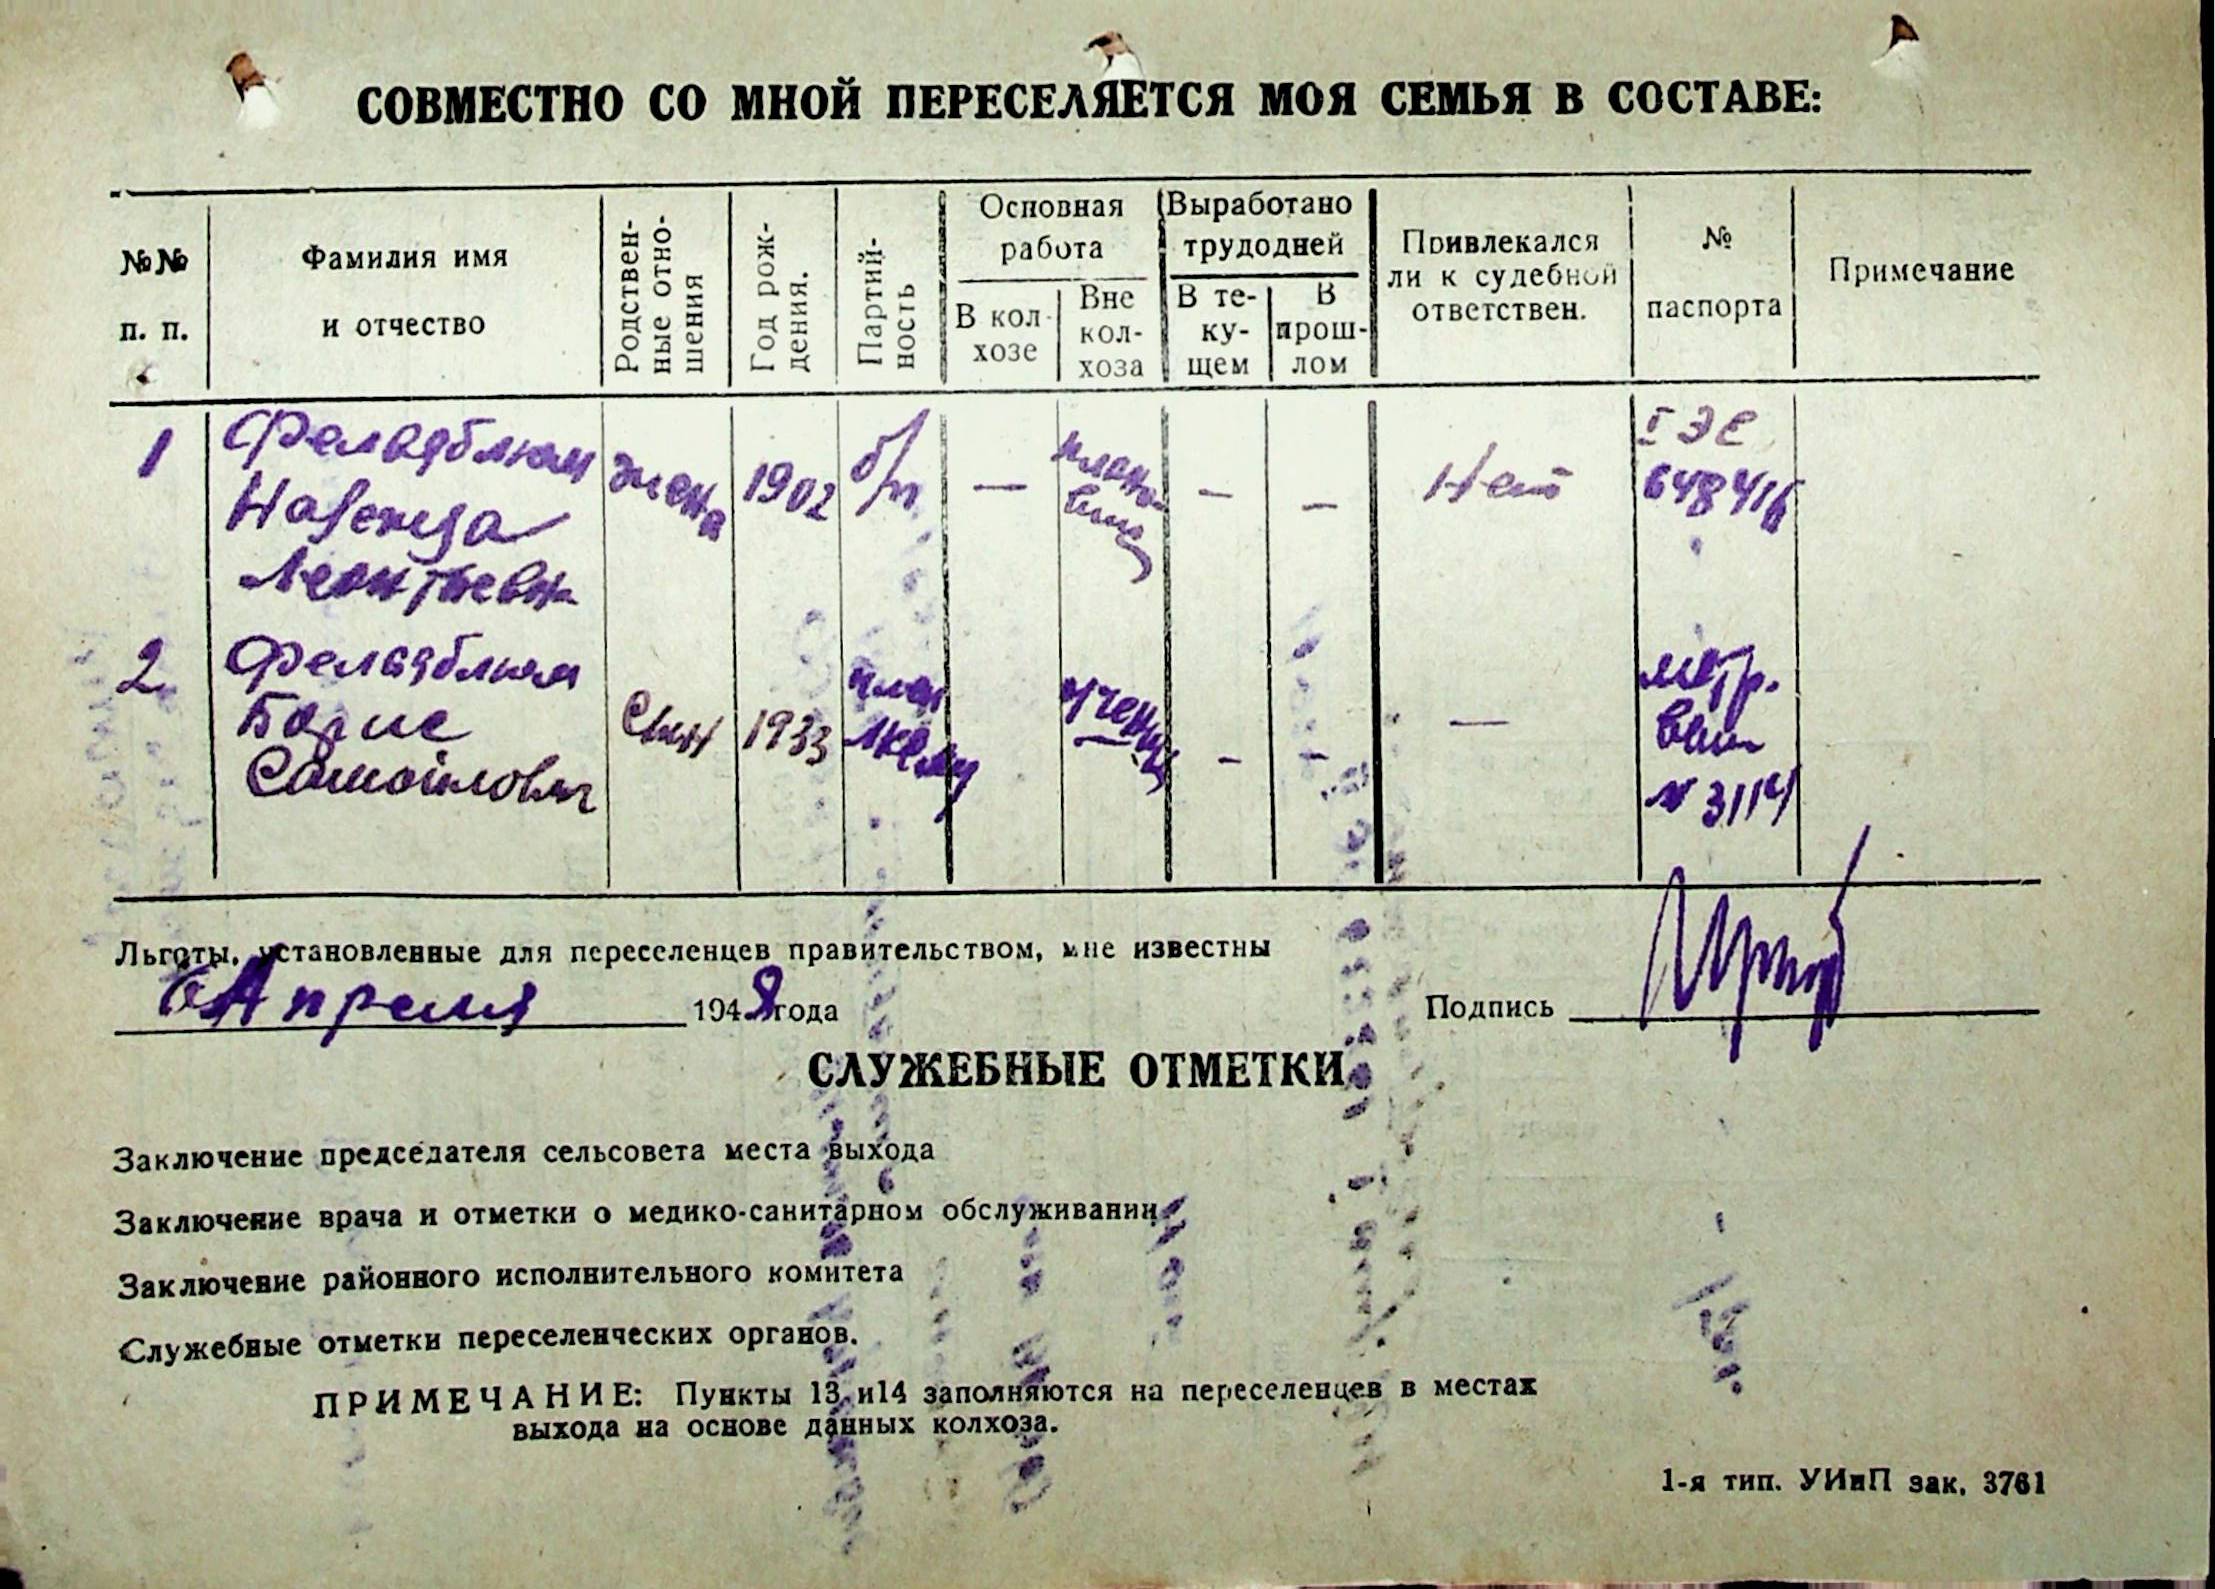 СОВМЕСТНО СО МНОЙ ПЕРЕСЕЛЯЕТСЯ МОЯ СЕМЬЯ В СОСТАВЕ:
№№
п. п.
Фамилия имя
и отчество
Родствен-
ные отно-
шения
Год рож-
дения.
Партий-
ность
Основная
работа
В кол-
хозе
Вне
кол-
хоза
Выработано
трудодней
В те-
ку-
щем
В
прош-
лом
Привлекался
ли к судебной
ответствен.
№
паспорта
Примечание
1
Фельдблюм
Надежда
Леонтьевн
жена
1902
б/п
—
плано-
вищ
–
–
Нет
I ЭС
648416
2
Фельдблюм
Борис
Самойлович
Сын
1933
член
ЛКСМУ
ученик
–
–
—
метр.
вып
№ 3114
Льготы, установленные для переселенцев правительством, мне известны
6 Апреля 1948 года
Подпись
СЛУЖЕБНЫЕ ОТМЕТКИ
Заключение председателя сельсовета места выхода
Заключение врача и отметки о медико-санитарном обслуживании
Заключение районного исполнительного комитета
Служебные отметки переселенческих органов.
ПРИМЕЧАНИЕ: Пункты 13 и14 заполняются на переселенцев в местах
выхода на основе данных колхоза.
1-я тип. УИиП зак. 3761